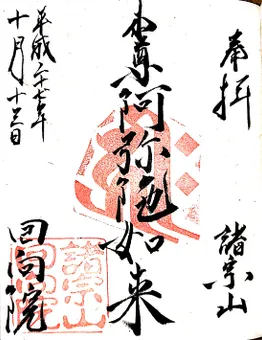 奉拝
諸宗山
本尊阿弥陀如来
平成二十七年
十月十三日
回向院
諸宗山
回向院